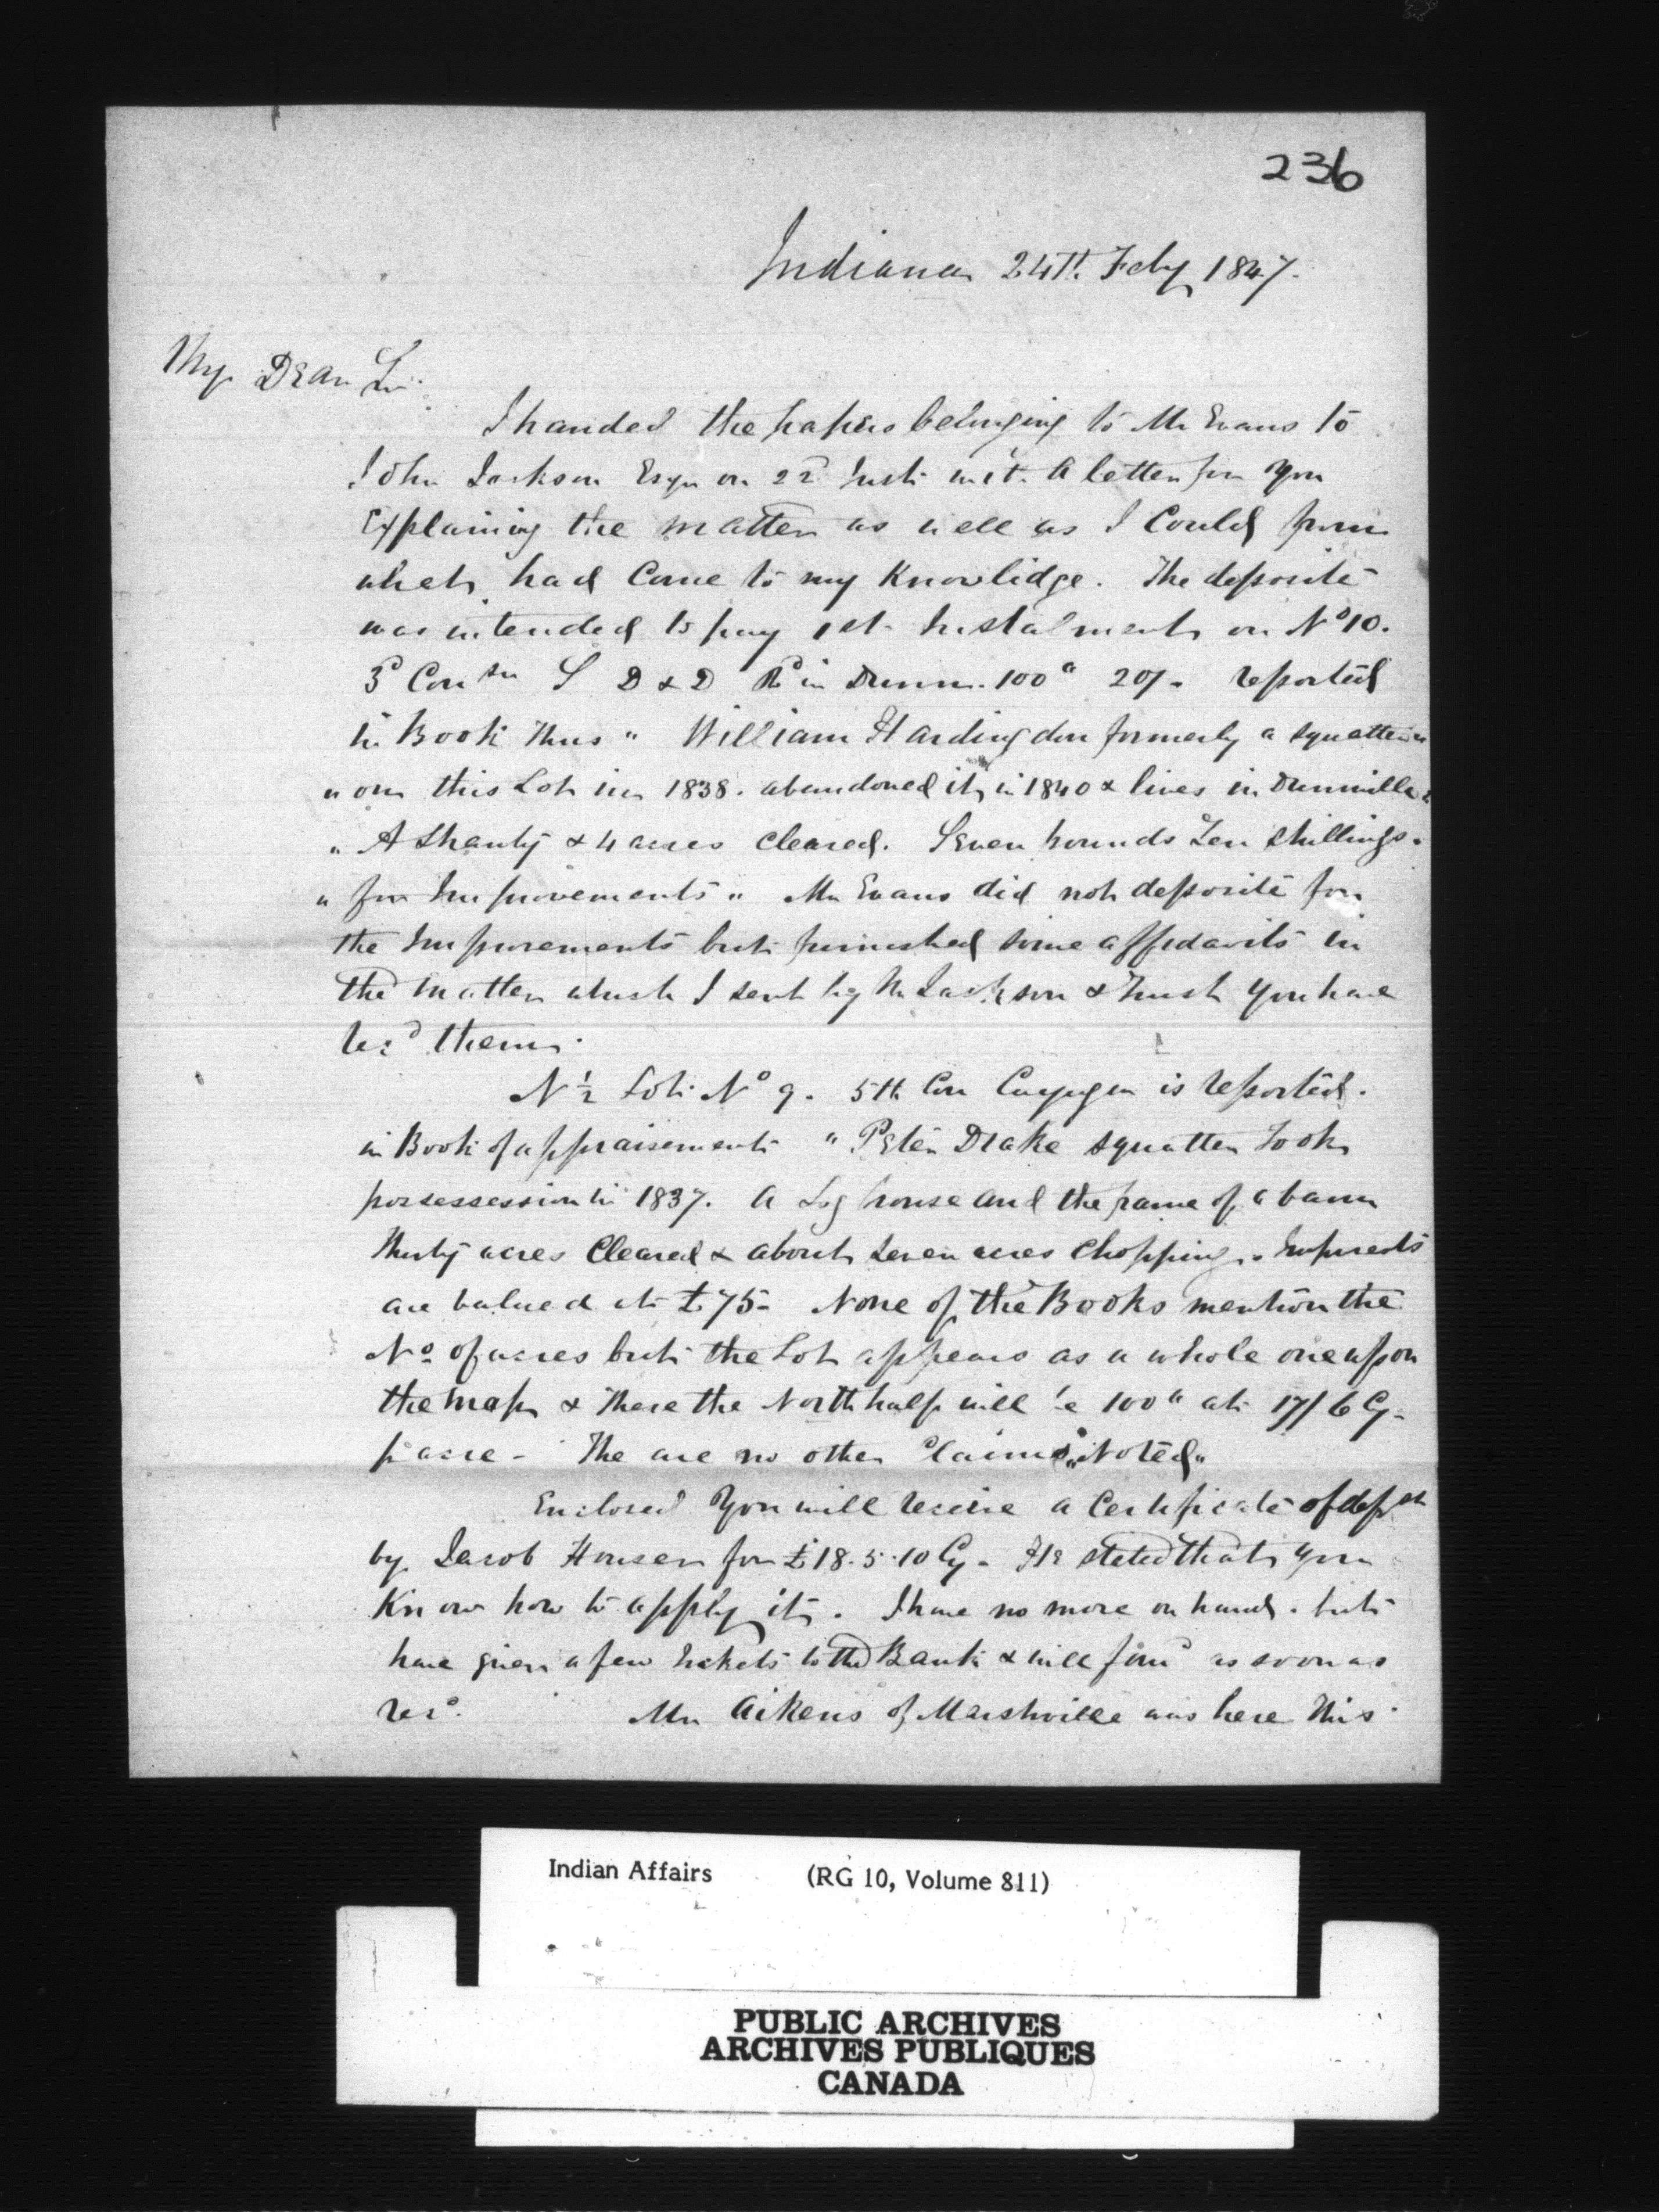 236
Indiana 24th Feby 1847.
My Dear Sir.
I handed the papers belonging to Mr Evans to
John Jackson Esqr on 22d Inst. wit. a letter for you
Explaining the matter as well as I Could from
what had Come to my Knowlidge. The deposite
was intended to pay 1st Instalment on No 10.
3d Con S D & D Rd in Dunn. 100a 20/- reported
in Book Thus " William Hardingdon formerly a squatter "
" on this Lot in 1838. abandoned it in 1840 & lives in Dunnville
" A Shanty & 4 acres Cleared. Seven pounds Ten Shillings.
" for Improvements " Mr Evans did not deposite for
the Improvements but furnished some affidavits in
the matter which I sent by Mr Jackson & trust you have
recd them.
N ½ Lot No 9. 5th Con Cayuga is reported.
in Book of appraisement " Peter Drake squatter took
possessession in 1837. a Log house and the frame of a barn
thirty acres Cleared & about seven acres Chopping.
are valued at £75- None of the Books mention the
No of acres but the Lot appears as a whole one upon
the map & There the North half will be 100a at 17/6 Cy-
p acre - The are no other Claims "Noted"
Enclosed You will receive a Certificate of
by Jacob Houser for £18.5.10 Cy- He stated that you
Know how to apply it. I have no more on hand. but
have given a few tickets to the Bank & will ford as soon as
recd. Mr Aikens of Marshville was here this
Indian Affairs (RG 10, Volume 811)
PUBLIC ARCHIVES
ARCHIVES PUBLIQUES
CANADA